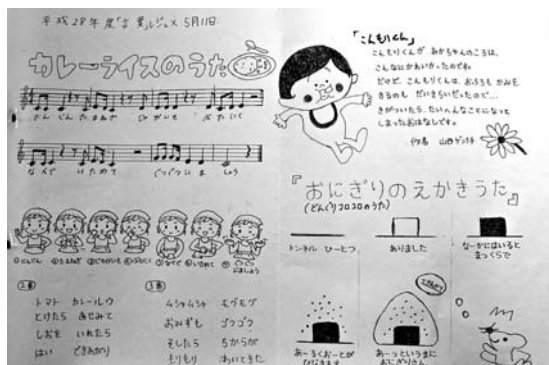 平成28年度「言葉」レジュメ 5月11日
カレーライスのうた
にんじん たまねぎ じゃがいも ぶたにく
なべで いためて ぐつぐつにま しょう
①にんじん ②たまねぎ ③じゃがいも ④ぶたにく ⑤なべで ⑥いためて ⑦ぐつぐつにましょう
2番
トマト カレールウ
とけたら あじみて
しおを いれたら
はい できあがり
3番
ムシャムシャ モグモグ
おみずも ゴクゴク
そしたら ちからが
もりもり わいてきた
「こんもりくん」
こんもりくんが あかちゃんのころは、
こんなにかわいかったのです。
だけど、こんもりくんは、おふろも かみを
きるのも だいきらいだったので…
きがついたら、たいへんなことになって
しまったおはなしです。
作者 山西ゲンイチ
『おにぎりのえかきうた』
(どんぐりコロコロのうた)
トンネル ひーとつ
ありました
なーかにはいると
まっくらで
あーるくおーとが
ひびきます
あーっというまに
おにぎりさん